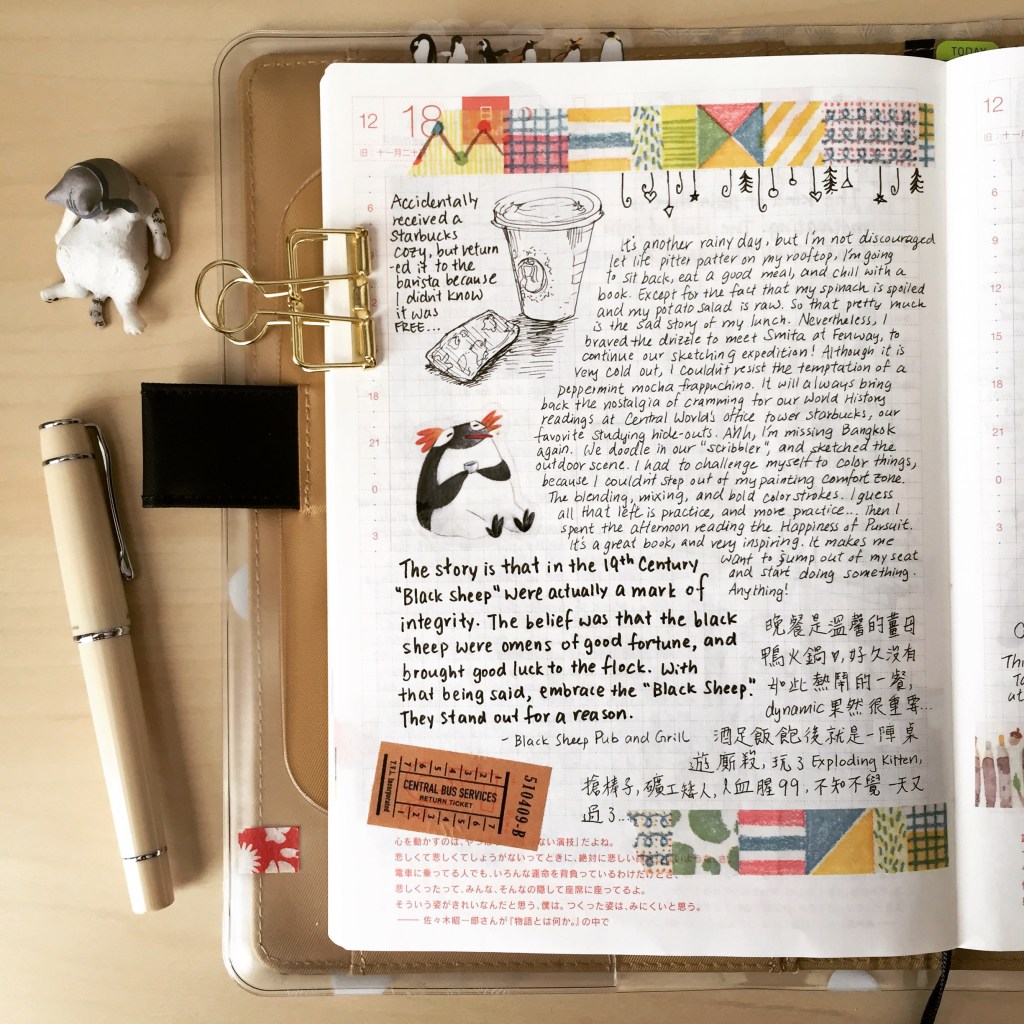 TODAY
12
18
12
旧：十一月二十
Accidentally
received a
Starbucks
cozy, but return
-ed it to the
barista because
I didn't know
it was
FREE...
It's another rainy day, but I'm not discouraged
let life pitter patter on my rooftop, I'm going
to sit back, eat a good meal, and chill with a
book. Except for the fact that my spinach is spoiled
and my potato salad is raw. So that pretty much
is the sad story of my lunch. Nevertheless, I
braved the drizzle to meet Smita at Fenway, to
continue our sketching expedition! Although it is
very cold out, I couldn't resist the temptation of a
peppermint mocha frappuchino. It will always bring
back the nostalgia of cramming for our World History
readings at Central World's office tower Starbucks, our
favorite studying hide-outs. Ahh, I'm missing Bangkok
again. We doodle in our "scribbler", and sketched the
outdoor scene. I had to challenge myself to color things,
because I couldn't step out of my painting comfort zone.
The blending, mixing, and bold color strokes. I guess
all that left is practice, and more practice... Then I
spent the afternoon reading the Happiness of Pursuit.
It's a great book, and very inspiring. It makes me
want to jump out of my seat
and start doing something.
Anything!
6
18
21
0
3
The story is that in the 19th Century
"Black sheep" were actually a mark of
integrity. The belief was that the black
sheep were omens of good fortune, and
brought good luck to the flock. With
that being said, embrace the "Black Sheep."
They stand out for a reason.
- Black Sheep Pub and Grill
晚餐是溫馨的薑母
鴨火鍋♥,好久沒有
如此熱鬧的一餐,
dynamic果然很重要...
酒足飯飽後就是一陣桌
遊廝殺,玩了Exploding Kitten,
搶棒子,礦工矮人,人血腥99,不知不覺一天又
過了...
TELL Incorporated
1 2 3 4 5 6 7
CENTRAL BUS SERVICES
RETURN TICKET
510409-B
心を動かすのは、やっぱり ない演技」だよね。
悲しくて悲しくてしょうがないってときに、絶対に悲しい
電車に乗ってる人でも、いろんな運命を背負っているわけだけど、
悲しくったって、みんな、そんなの隠して座席に座ってるよ。
そういう姿がきれいなんだと思う、僕は。つくった姿は、みにくいと思う。
—— 佐々木昭一郎さんが『物語とは何か。』の中で
6
12
15
18
21
0
3